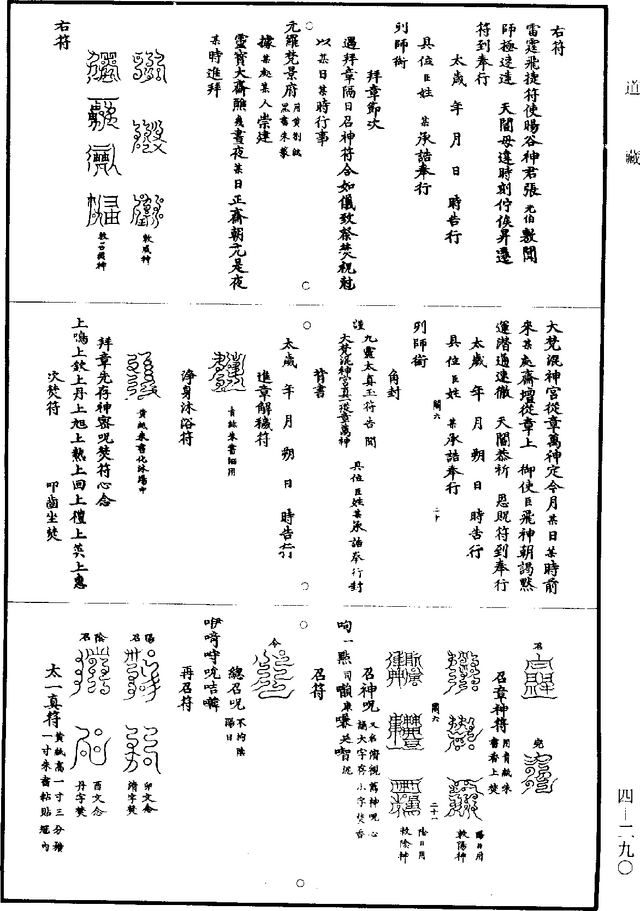 道藏
右符
雷霆飛捷符使暘谷神君張元伯敷聞
師極速達　天閽毋違時刻佇俟昇遷
符到奉行
太歲　年　月　日　時告行
具位臣姓　某承誥奉行
列師銜
拜章節次
遇拜章隔日召神符令如儀致祭焚祝尅
以某日某時行事
元羅梵景府用黃劄紙黑書朱篆
據某處某人崇建
靈寶大齋醮幾晝夜某日正齋朝元是夜
某時進拜
敕威神
敕召
右符
大梵混神宮從章萬神定今月某日某時前
來某處齋壇從章上　御使臣飛神朝謁黙
運潛通速徹　天閽恭祈　恩貺符到奉行
太歲　年　月　朔　日　時告行
具位臣姓　某承誥奉行
列師銜
閑六
二十
角封
謹　九靈太真玉符告聞
大梵混神宮真從章萬神
具位臣姓某承誥奉行封
背書
太歲　年　月　朔　日　時告行
進章解穢符
青紙朱書佩用
淨身沐浴符
黃紙朱書化沐湯中
拜章先存神密呪焚符心念
上鳴上欽上丹上旭上熱上回上禮上英上惠
次焚符　叩齒坐焚
召
兌
召章神符用青紙朱書香上焚
陽日用
敕陽神
閑六
二十一
陰日用
敕陰神
召神呪
召符
今
總召呪不拘陰陽日
再召符
陽召
卯文念
清字焚
陰召
酉文念
丹字焚
太一真符黃紙高一寸三分横一寸朱書粘貼冠內
四—二九〇